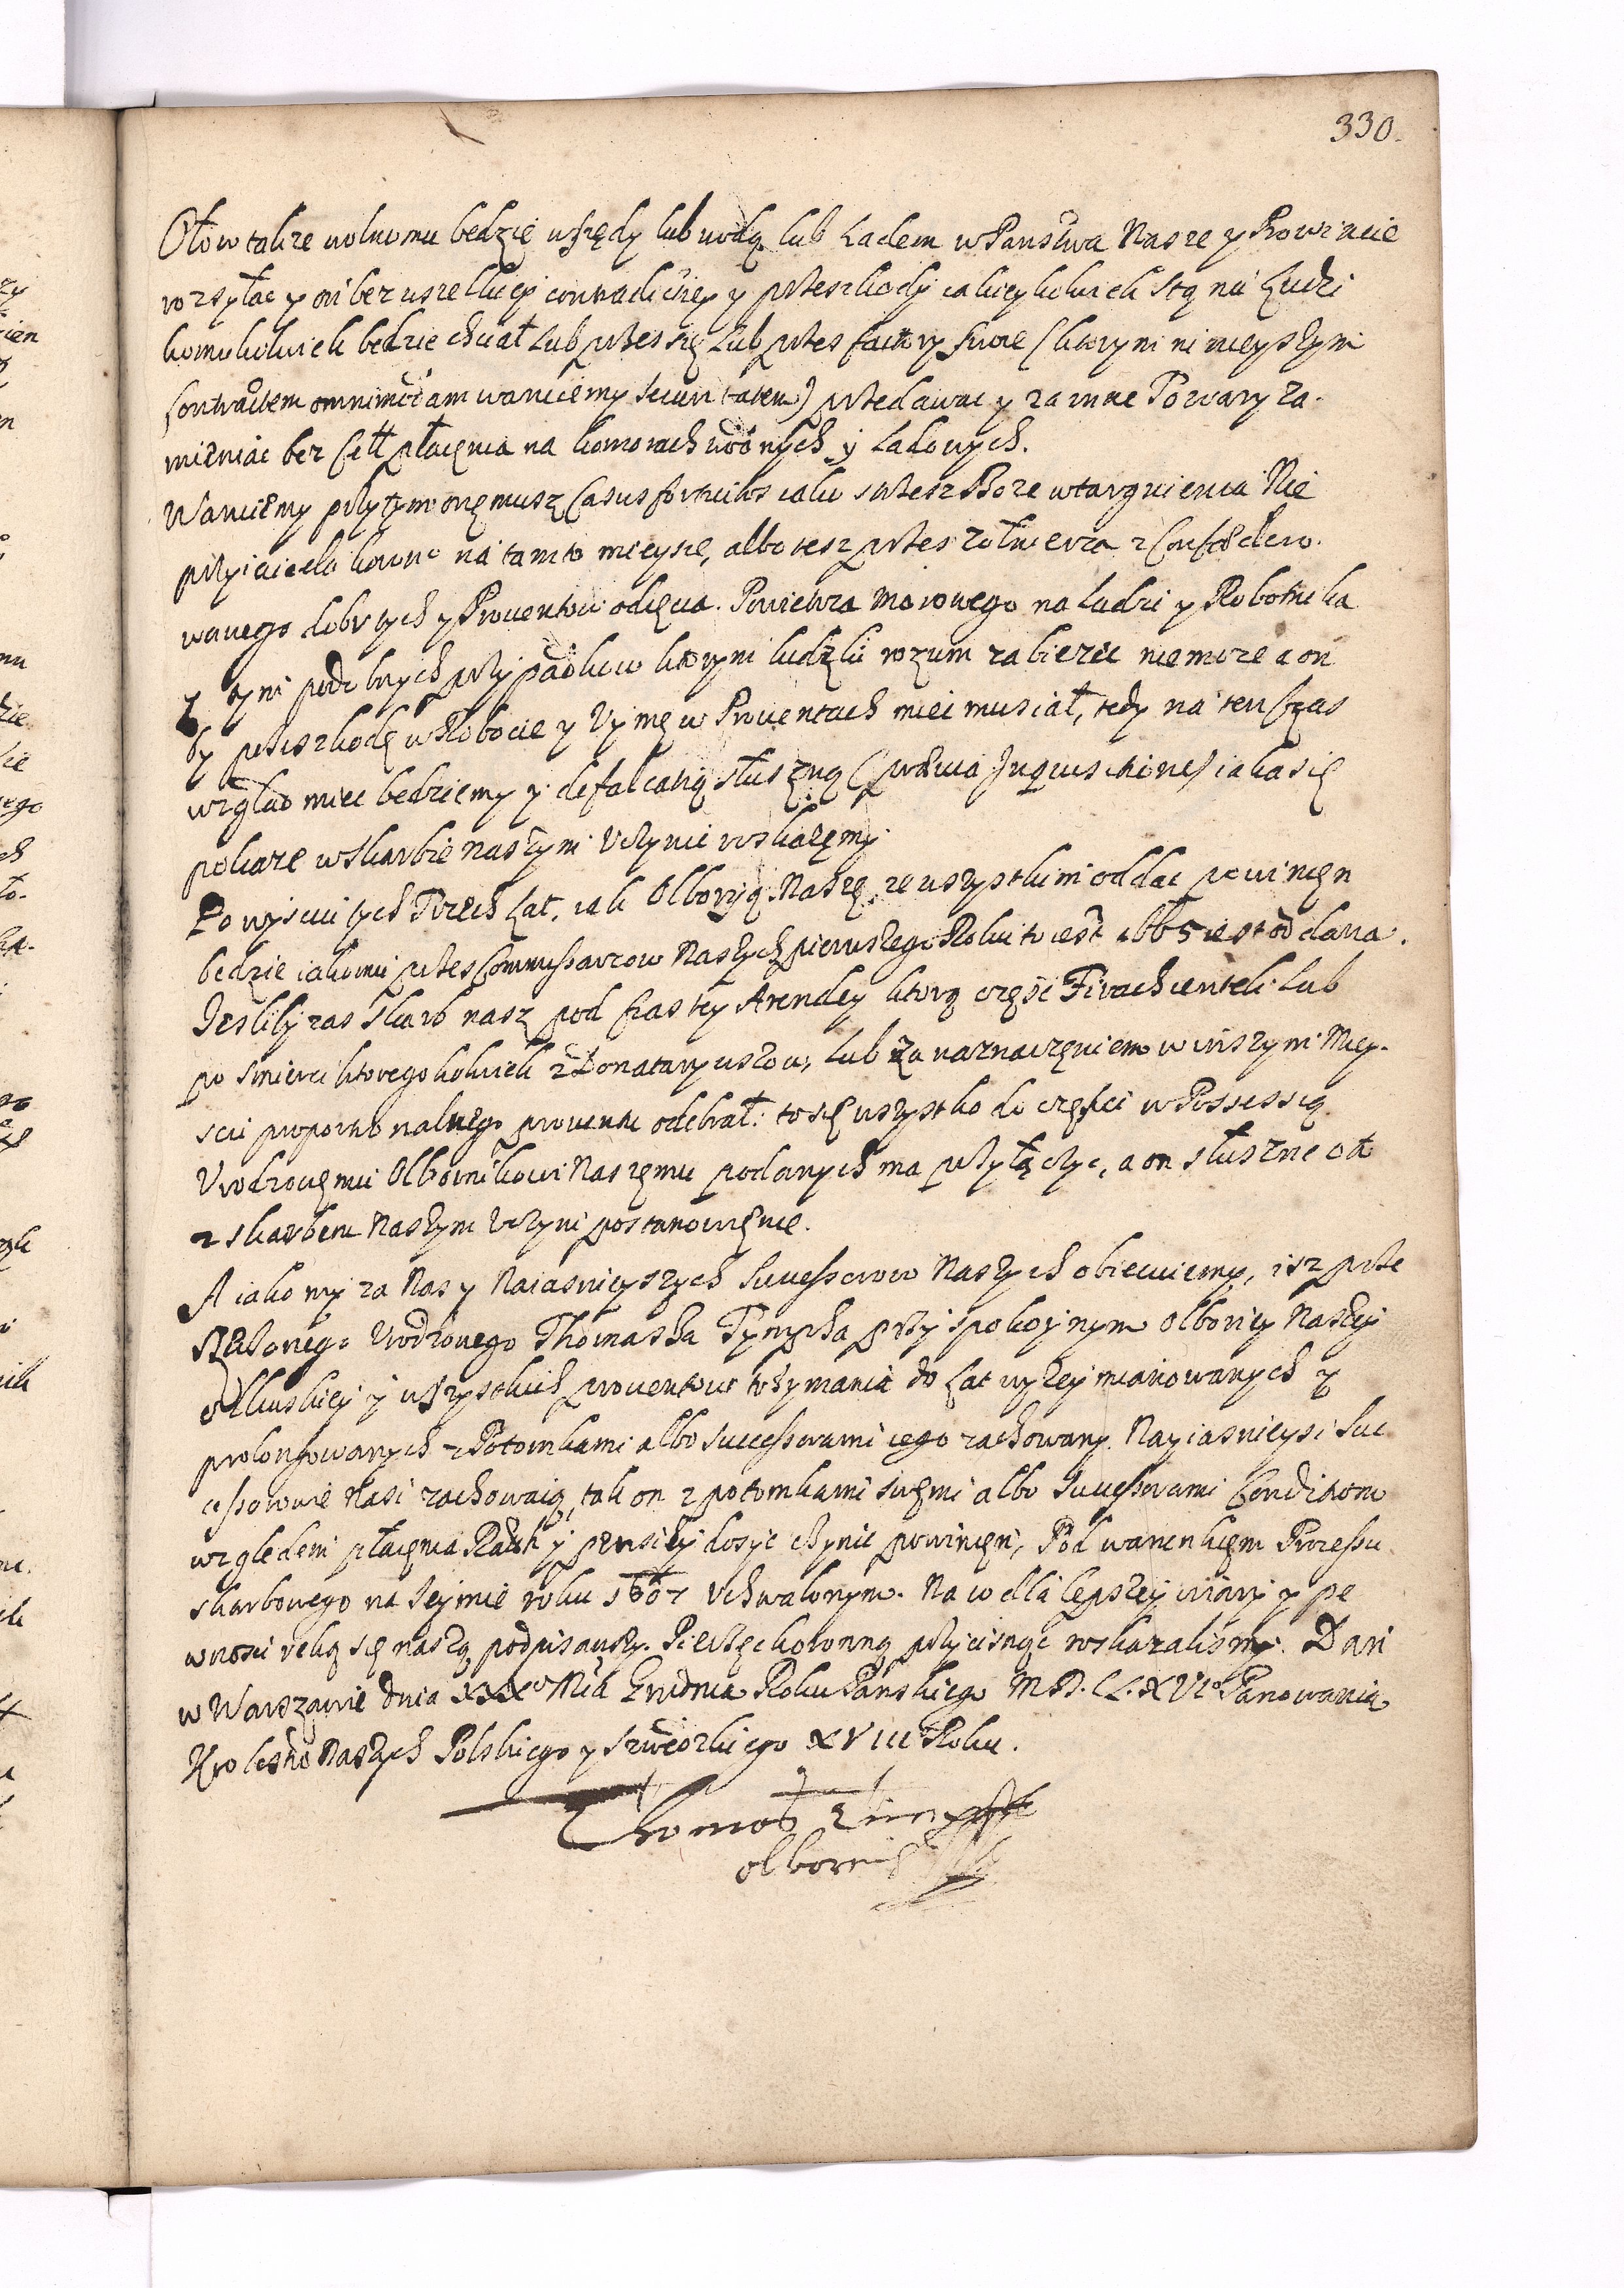 330.
Ołow takze wolno mu będzie wszędy lub wodą lub Ladem w Panstwa Nasze y Prowincie
rozsyłac y on bez wszelkiey contradictiey y przeszkody iakieykolwiek stąnu Ludzi
komukolwiek będzie chciał Lub przes się Lub przes factory swoie (ktorym ninieyszym
contractem omnimodam waruiemy securitatem) przedawac y za inne Towary za-
mieniac bez Cełł płacenia na komorach wodnych y Ladowych.
Waruiemy przytym onemusz Casus fortuitos iako strzesz Boze wtargnienia Nie
przyiaciela koronͦ na tamto mieysce, albo tesz przes zołnierza z Confœdero-
wanego dobr tych y Prouentow odięcia. Powietrza Morowego na Ludzi y Robotnika
y tym podobnych przypadkow ktorym ludzki rozum zabiezec nie moze a on
by przeszkodę w Robocie y Vymę w Prouentach miec musiał, tedy na ten Czas
wzgląd miec będziemy y defalcatią słuszną (prævia Inquisitione) iaka się
pokaze w Skarbie naszym Vczynic roskazemy.
Po wysciu tych Trzech Lat, iak Olborią Naszę ze wszystkim oddac powinien
będzie iako mu przes Commissarzow Naszych pierwszego Roku to iest 1665 iest oddana.
Jesliby zas Skarb nasz pod czas tey Arendey ktorą częsc Fivach ienteli Lub
po smierci ktoregokolwiek z Donataryuszow, Lub za naznaczeniem w inszym Miey-
scu proportionalnego prouentu odebrał: to się wszystko do części w Possessią
Vrodzonemu Olbornikowi Naszemu podanych ma przyłączyc, a on słuszne o to
z skarbem Naszym Vczyni postanowienie.
A iako my za Nas y Naiasnieyszych Successorow Naszych obiecuiemy, isz prze
rzeczonego Vrodzonego Thomasza Tympha przy spokoynym Olboriey Naszey
Olkuskiey y wszystkich prouentow trzymaniu do Lat wyzey mianowanych y
prolongowanych z Potomkami albo successorami iego zachowamy. Nayiasnieysi Suc
cessorowie Nasi zachowaią, tak on z potomkami swemi albo Successorami Conditiom
względem płacenia Rat y pensiey dosyc czynic powinien, Pod warunkiem Processu
skarbowego na Seymie roku 1607 Vchwalonym. Na co dla lepszey wiary y pe
wnosci ręką się naszą podpisawszy. Pieczęc koronną przycisnąc roskazalismy. Dan
w Warszawie dnia XXXͦ Mca Grudnia Roku Panskiego M.D.C.L.XVIͦ Panowania
Krolestw Naszych Polskiego y Szwedzkiego XVIII Roku.
Thomas Timpff
olbornik